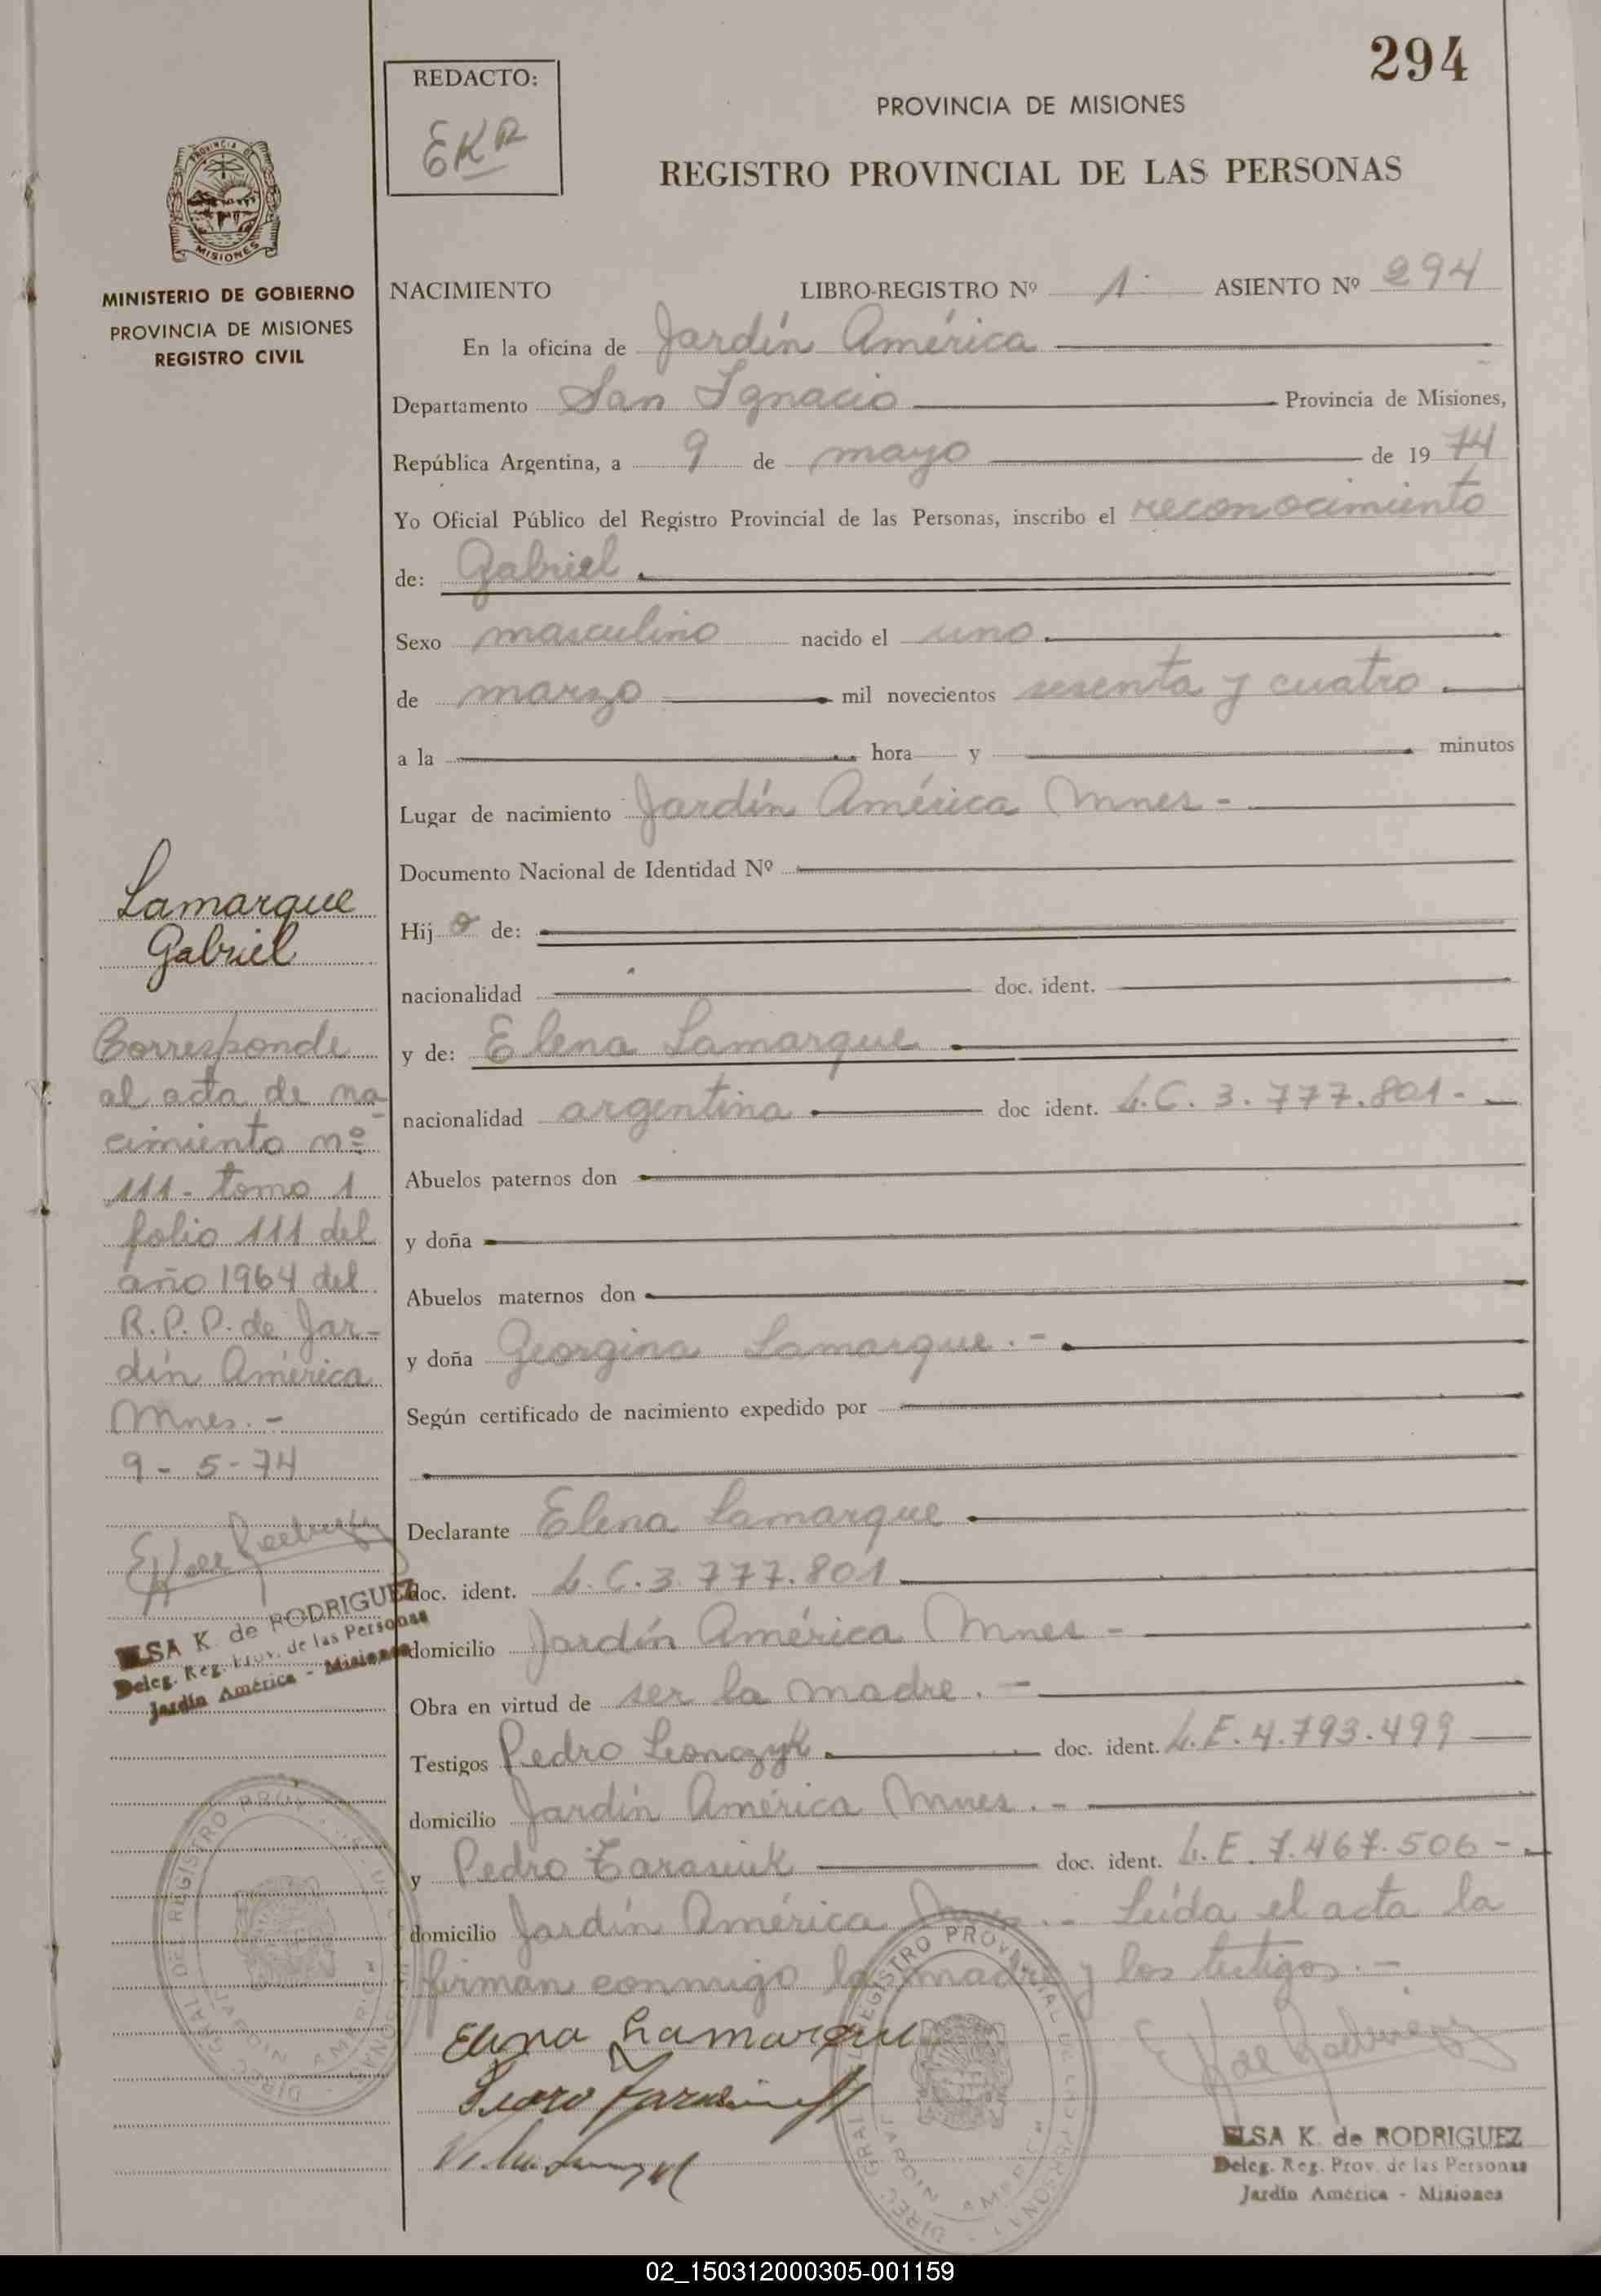 294
REDACTO:
EKR
PROVINCIA DE MISIONES
REGISTRO PROVINCIAL DE LAS PERSONAS
PROVINCIA DE
MISIONES
MINISTERIO DE GOBIERNO
PROVINCIA DE MISIONES
REGISTRO CIVIL
NACIMIENTO LIBRO-REGISTRO Nº 1 ASIENTO Nº 294
En la oficina de Jardín América
Departamento San Ignacio Provincia de Misiones,
República Argentina, a 9 de mayo de 1974
Yo Oficial Público del Registro Provincial de las Personas, inscribo el reconocimiento
de: Gabriel
Sexo masculino nacido el uno
de marzo mil novecientos sesenta y cuatro
a la hora y minutos
Lugar de nacimiento Jardín América Mnes -
Documento Nacional de Identidad Nº
Hijo de:
nacionalidad doc. ident.
y de: Elena Lamarque
nacionalidad argentina doc ident. L.C. 3.777.801 -
Abuelos paternos don
y doña
Abuelos maternos don
y doña Georgina Lamarque. -
Según certificado de nacimiento expedido por
Declarante Elena Lamarque
doc. ident. L.C. 3.777.801
domicilio Jardín América Mnes -
Obra en virtud de ser la madre. -
Testigos Pedro doc. ident. L.E. 4.793.499
domicilio Jardín América Mnes. -
y Pedro Tarasiuk doc. ident. L.E. 7.467.506 -
domicilio Jardín América Mnes. - Leída el acta la
firman conmigo la madre y los testigos. -
Elena Lamarque
Pedro
ELSA K. de RODRIGUEZ
Deleg. Reg. Prov. de las Personas
Jardín América - Misiones
Lamarque
Gabriel
Corresponde
al acta de na
cimiento nº
111 - tomo 1
folio 111 del
año 1964 del
R.P.P. de Jar-
dín América
Mnes. -
9 - 5 - 74
ELSA K. de RODRIGUEZ
Deleg. Reg. Prov. de las Personas
Jardín América - Misiones
02_150312000305-001159